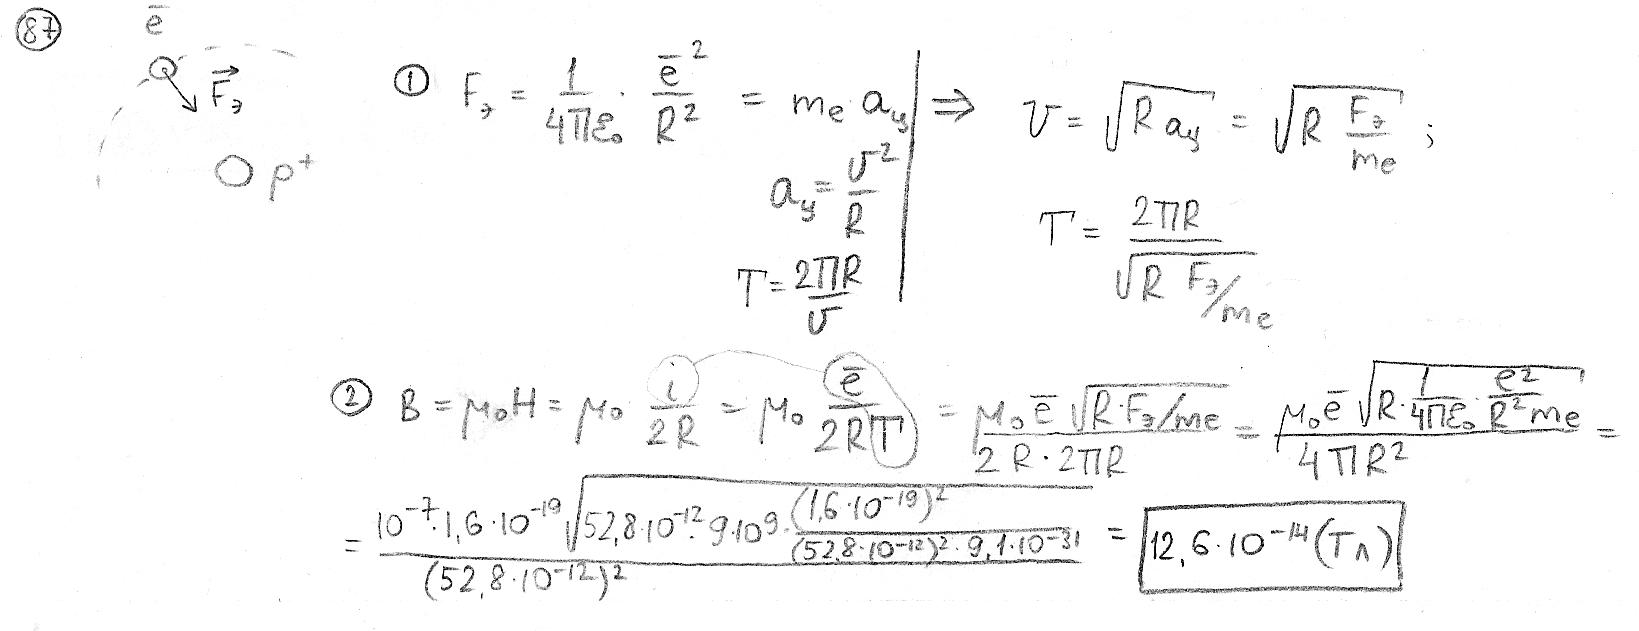 87
ē
F⃗э
p⁺
① Fэ = 1/(4πε₀) · ē²/R² = me aц ⇒ v = √(R aц) = √(R Fэ/me) ;
aц = v²/R
T = 2πR/v
T = 2πR/√(R Fэ/me)
② B = μ₀H = μ₀ i/(2R) = μ₀ ē/(2RT) = μ₀ ē √(R·Fэ/me)/(2R·2πR) = μ₀ ē √(R·1/(4πε₀)·e²/(R² me))/(4πR²) =
= 10⁻⁷·1,6·10⁻¹⁹ √(52,8·10⁻¹²·9·10⁹·(1,6·10⁻¹⁹)²/((52,8·10⁻¹²)²·9,1·10⁻³¹))/(52,8·10⁻¹²)² = 12,6·10⁻¹⁴ (Тл)